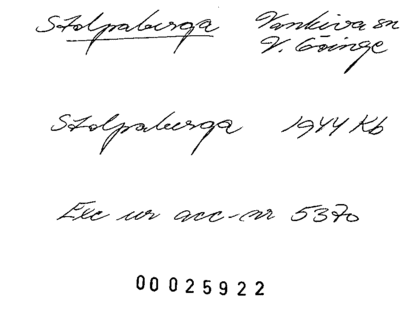 Stolpaberga Vankiva sn
V. Göinge
Stolpaberga 1944 Kb
Exc ur acc-nr 5370
00025922